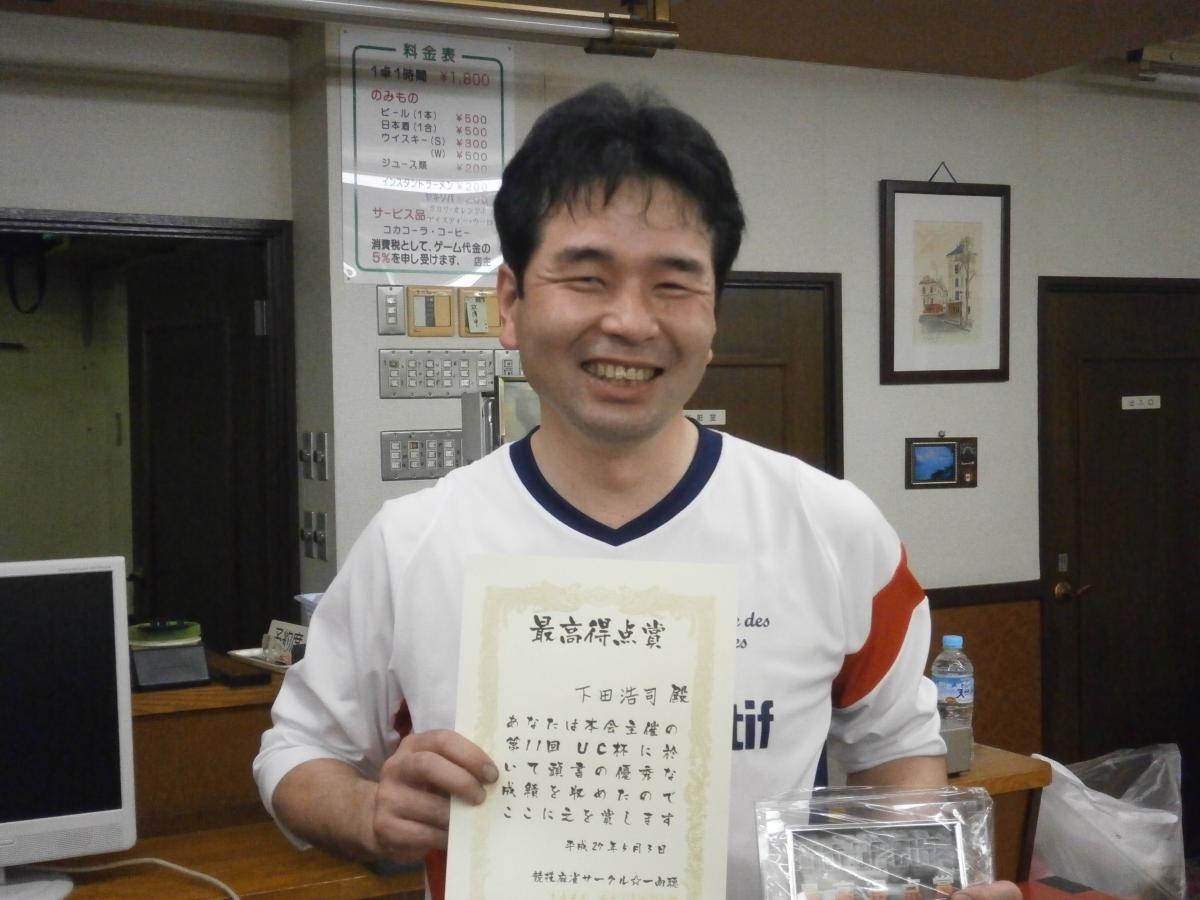 料金表
1卓1時間 ¥1,800
のみもの
ビール(1本) ¥500
日本酒(1合) ¥500
ウイスキー(S) ¥300
(W) ¥500
ジュース類 ¥200
インスタントラーメン ¥200
ヤキソバ ¥200
サービス品
コカコーラ・コーヒー
消費税として、ゲーム代金の
5%を申し受けます。 店主
化粧室
出入口
予約席
des
es
tif
最高得点賞
下田浩司 殿
あなたは本会主催の
第11回 UC杯に於
いて頭書の優秀な
成績を収めたので
ここに之を賞します
平成27年5月3日
競技麻雀サークル☆一向聴